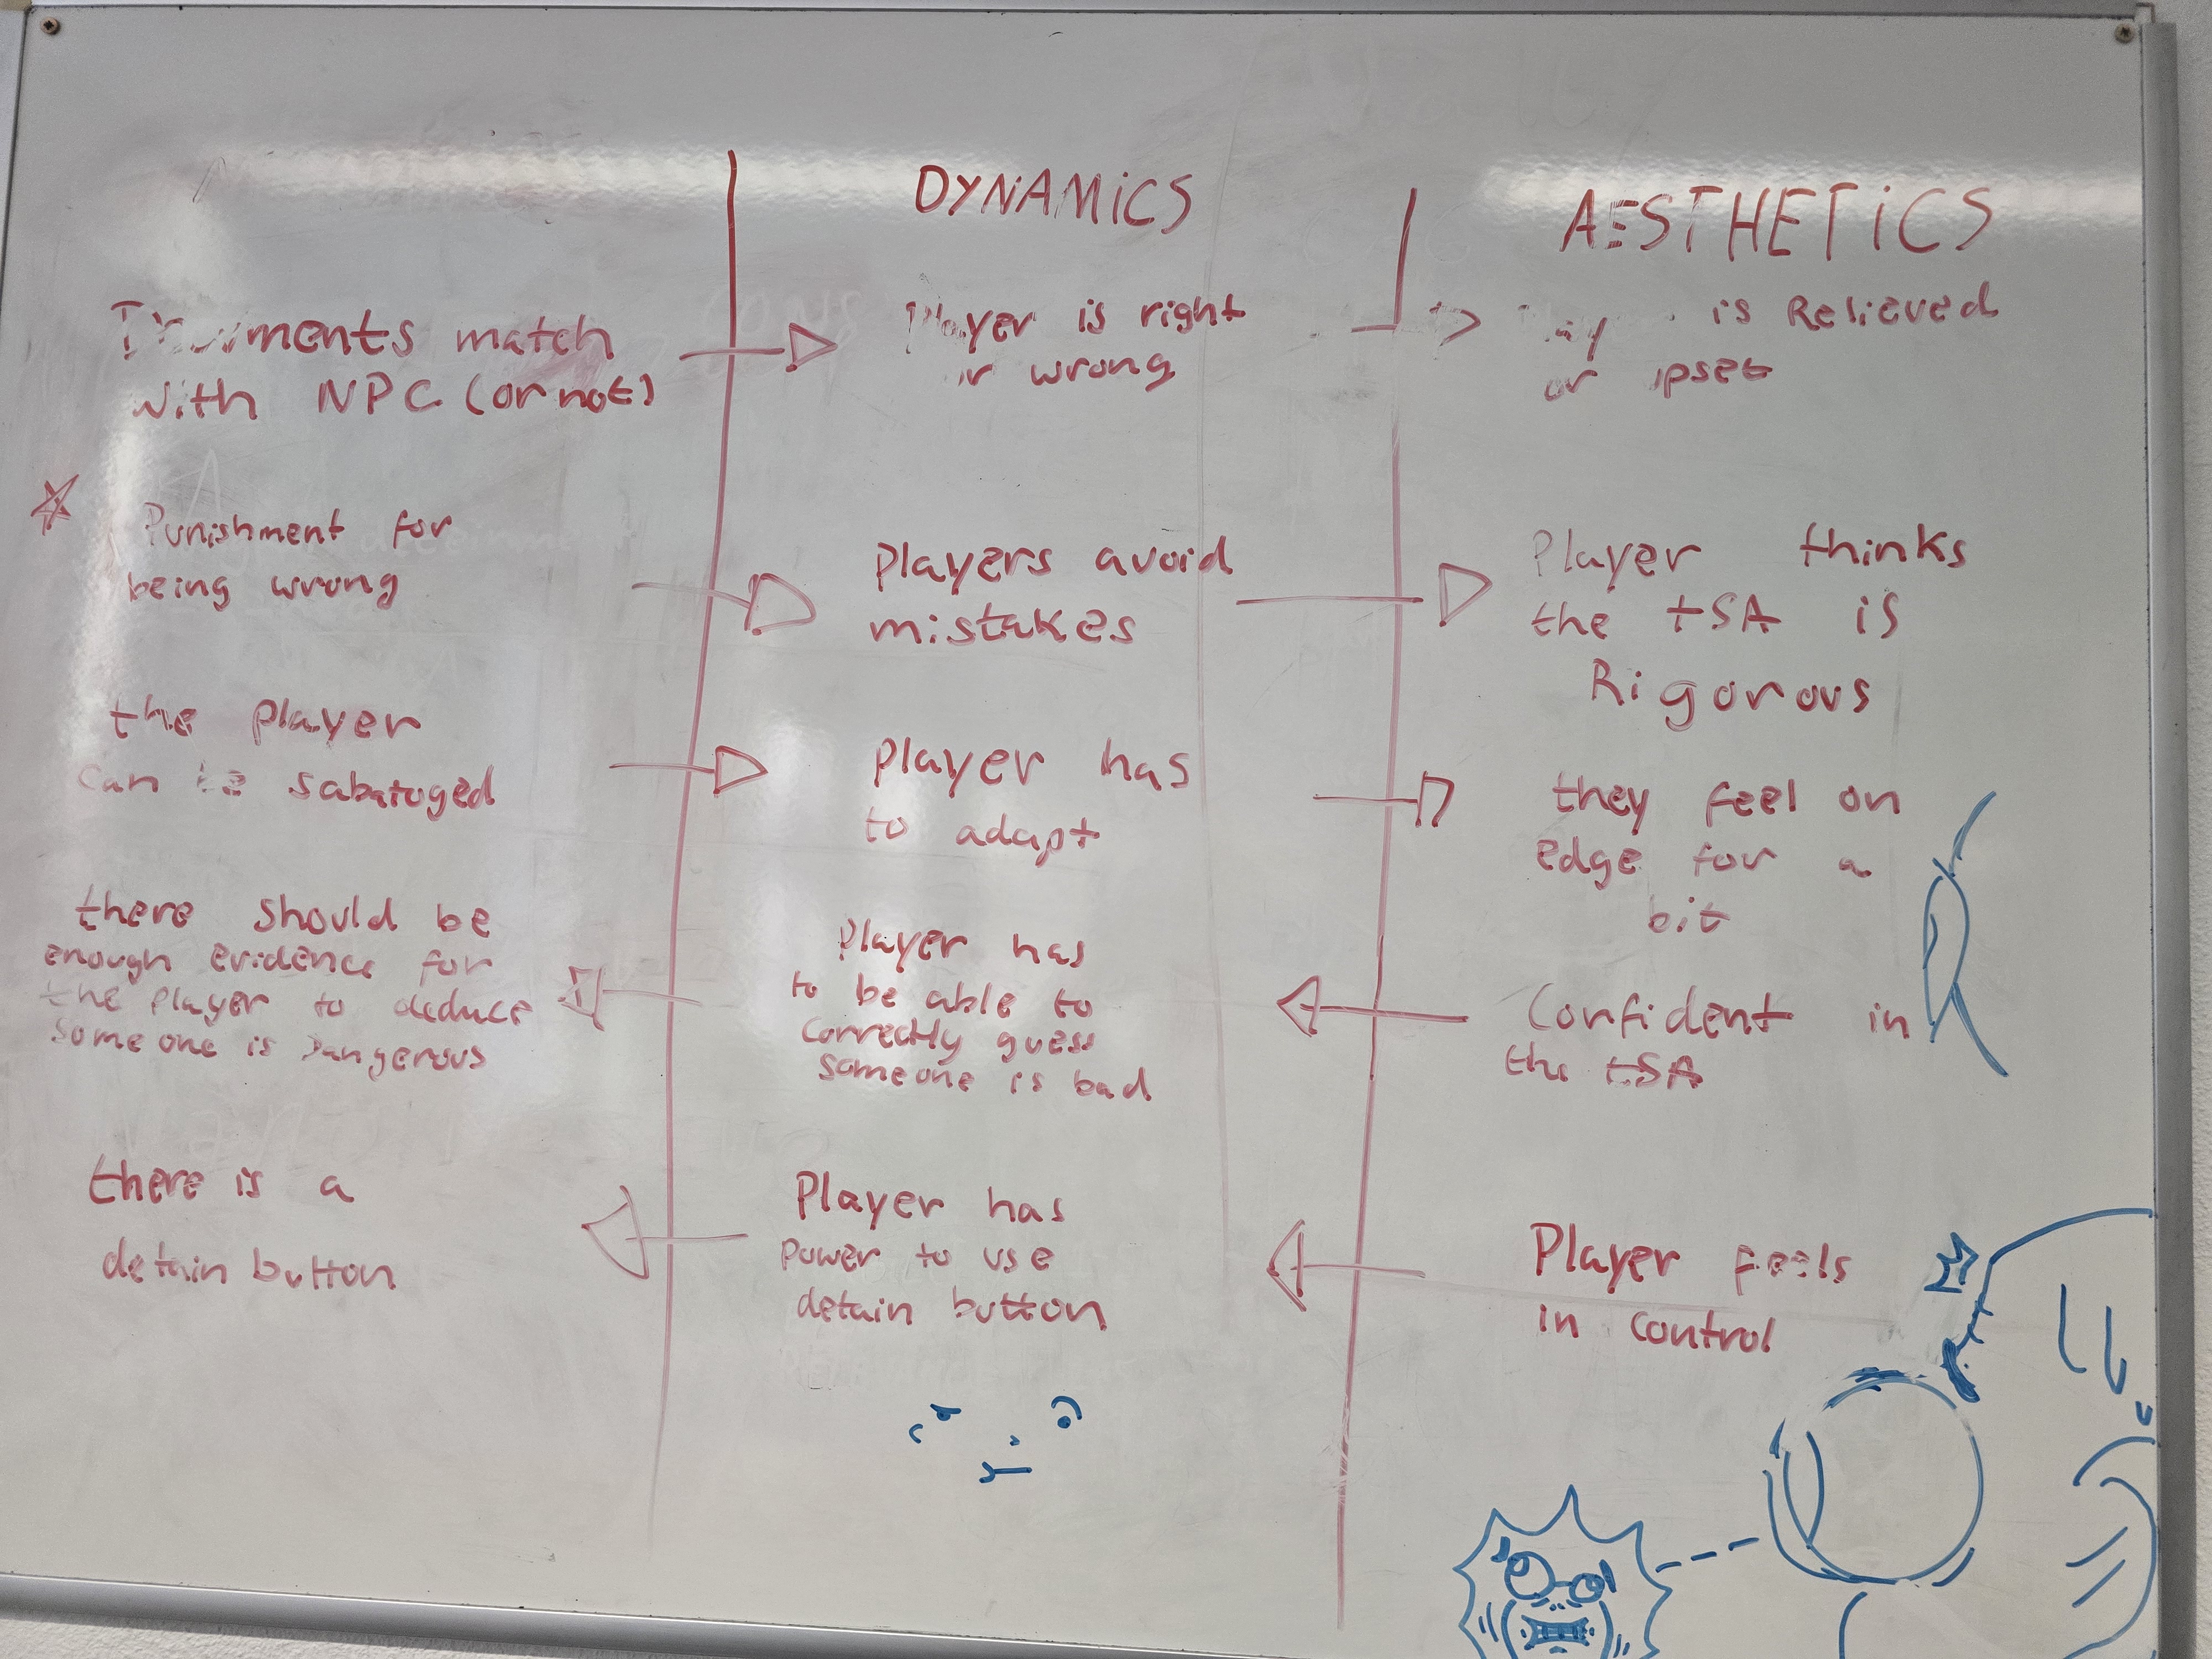 DYNAMICS
AESTHETICS
match
with NPC (or not)
Player is right
or wrong
is Relieved
or upset
Punishment for
being wrong
Players avoid
mistakes
Player thinks
the tSA is
Rigorous
the player
can be sabatoged
Player has
to adapt
they feel on
edge for a
bit
there should be
enough evidence for
the player to deduce
someone is Dangerous
Player has
to be able to
correctly guess
someone is bad
Confident in
the tSA
there is a
detain button
Player has
power to use
detain button
Player feels
in control